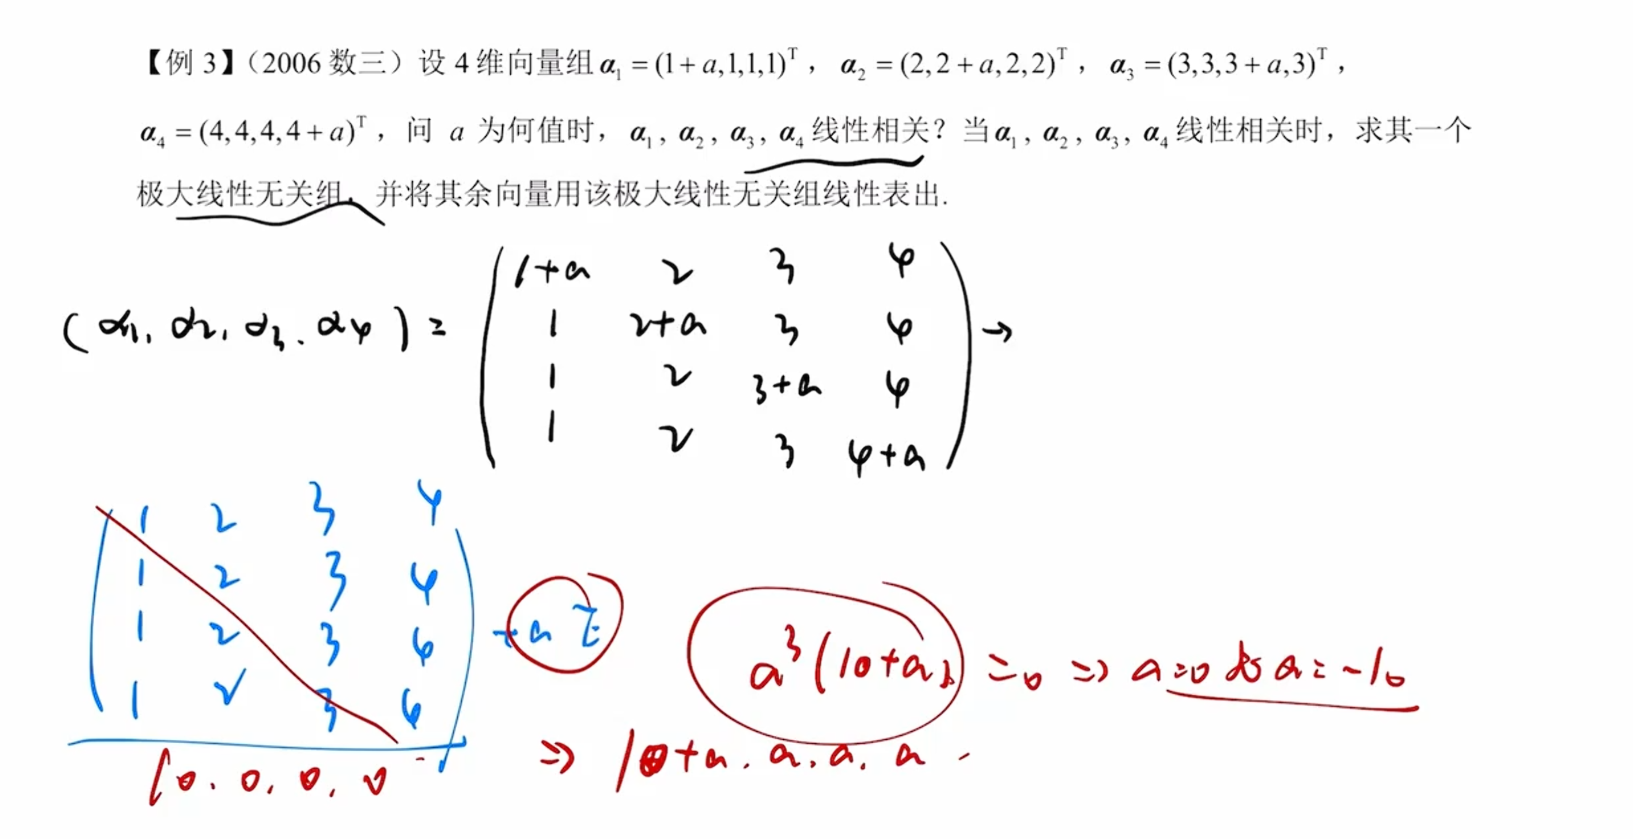 【例3】（2006数三）设4维向量组α₁=(1+a,1,1,1)ᵀ，α₂=(2,2+a,2,2)ᵀ，α₃=(3,3,3+a,3)ᵀ，
α₄=(4,4,4,4+a)ᵀ，问 a 为何值时，α₁,α₂,α₃,α₄线性相关？当α₁,α₂,α₃,α₄线性相关时，求其一个
极大线性无关组，并将其余向量用该极大线性无关组线性表出.
1+a 2 3 4
(α₁, α₂, α₃. α₄) = 1 2+a 3 4 →
1 2 3+a 4
1 2 3 4+a
1 2 3 4
1 2 3 4
1 2 3 4 +aE
1 2 3 4
a³(10+a)=0 ⇒ a=0或a=-10
10, 0, 0, 0
⇒ 10+a, a, a, a